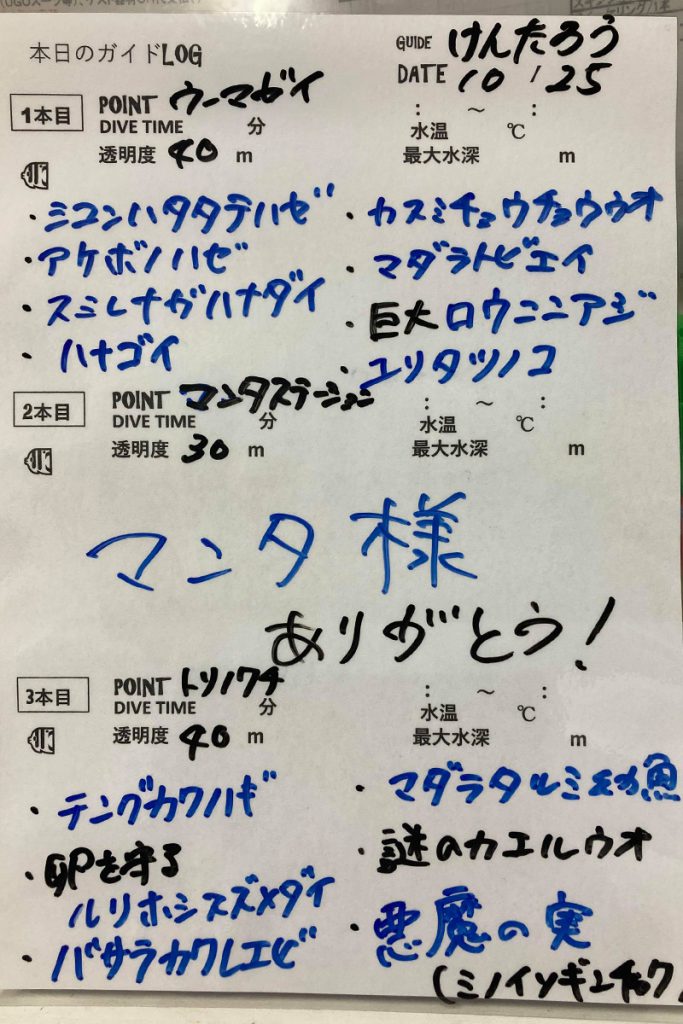 本日のガイドLOG
GUIDE けんたろう
DATE 10 / 25
1本目 POINT ウーマガイ
DIVE TIME 分 : ～ :
透明度 40 m 水温 ℃ 最大水深 m
・ミコンハタタテハゼ ・カスミチョウチョウウオ
・アケボノハゼ ・マダラトビエイ
・スミレナガハナダイ ・巨大ロウニンアジ
・ハナゴイ ・ユリタツノコ
2本目 POINT マンタステーション
DIVE TIME 分 : ～ :
透明度 30 m 水温 ℃ 最大水深 m
マンタ様
ありがとう!
3本目 POINT トリノクチ
DIVE TIME 分 : ～ :
透明度 40 m 水温 ℃ 最大水深 m
・テングカワハギ ・マダラタルミ幼魚
・卵を守る ・謎のカエルウオ
ルリホシスズメダイ
・バサラカクレエビ ・悪魔の実
(ミノイソギンチャク)